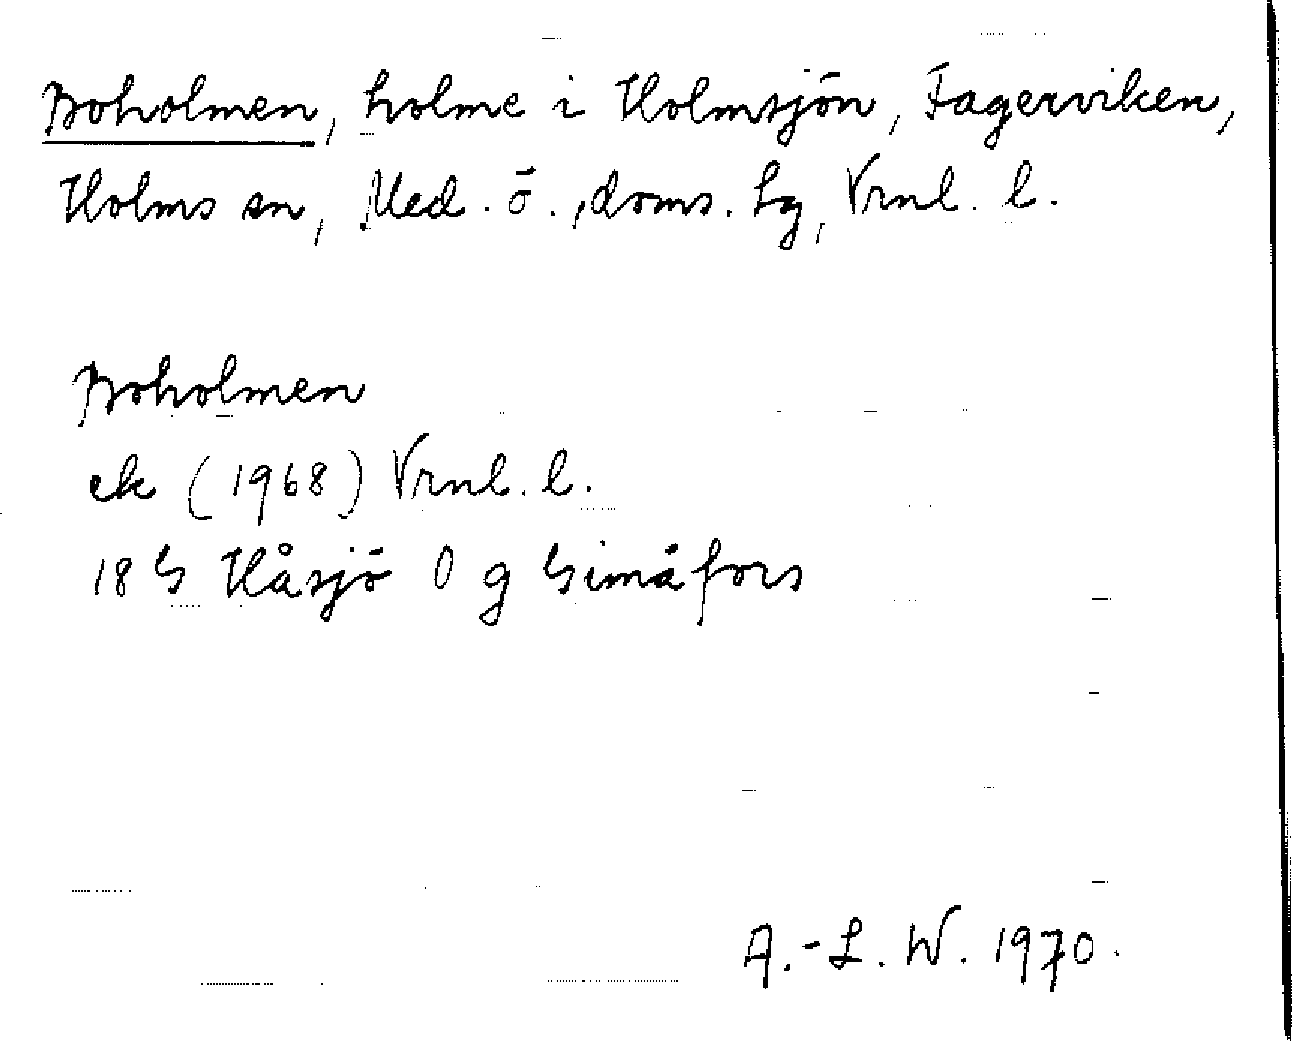 Boholmen, holme i Holmsjön, Fagerviken,
Holms sn, Med. ö., doms. Lg, Vrnl. l.
Boholmen
ek (1968) Vrnl. l.
18 G Håsjö O g Gimåfors
A.-L. W. 1970.